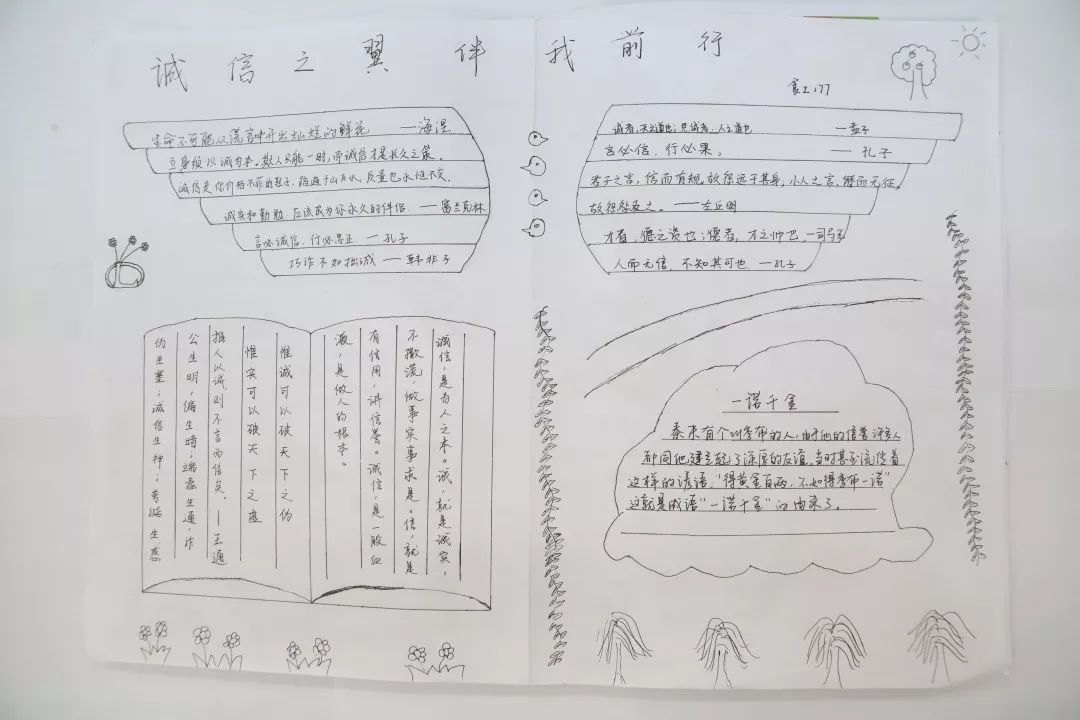 诚信之翼伴我前行
食工177
生命不可能从谎言中开出灿烂的鲜花 ——海涅
立身须以诚为本。欺人只能一时,而诚信才是长久之策。
诚信是你价格不菲的鞋子,踏遍千山万水,质量也永恒不变。
诚实和勤勉,应该成为你永久的伴侣。——富兰克林
言必诚信,行必忠正 ——孔子
巧诈不如拙诚 ——韩非子
诚者,天之道也;思诚者,人之道也 ——孟子
言必信,行必果。 ——孔子
君子之言,信而有征,故怨远于其身;小人之言,僭而无征,
故怨咎及之。——左丘明
才者,德之资也;德者,才之帅也。—司马
人而无信,不知其可也 —孔子
惟诚可以破天下之伪
惟实可以破天下之虚
推人以诚,则不言而信矣。——王通
公生明,偏生暗;端悫生通,诈
伪生塞;诚信生神,夸诞生惑
诚信,是为人之本。诚,就是诚实,
不撒谎,做事实事求是。信,就是
有信用,讲信誉。诚信,是一股血
液,是做人的根本。
一诺千金
秦末有个叫季布的人,由于他的信誉许多人
都同他建立起了深厚的友谊。当时甚至流传着
这样的谚语:"得黄金百两,不如得季布一诺"
这就是成语"一诺千金"的由来了。